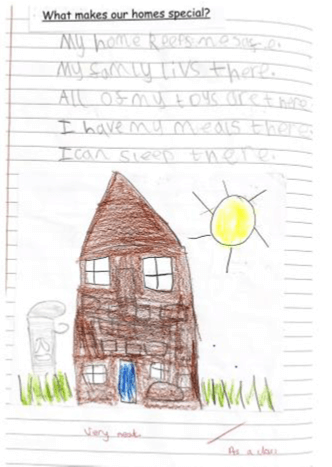 What makes our homes special?
My home keeps me safe.
My family livs there.
All of my toys are there
I have my meals there.
I can sleep there.
Very neat.
As a class